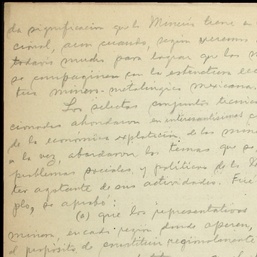 de significación que la Minería tiene en
cional, aun cuando, según veremos
todavía mucho para lograr que los m
se compaginen con la estructura eco
tria minero-metalúrgica mexicana.
Los selectos conjuntos técnicos
cionados abordaron en interesantísimos c
de la económica explotación de las minas
a la vez, abordaron los temas que so
problemas sociales y políticos de la U
ter agotante de sus actividades. Fue
plo, se aprobó:
(a) que los representativos
mineros, en cada región donde operen,
el propósito de constituir regionalmente